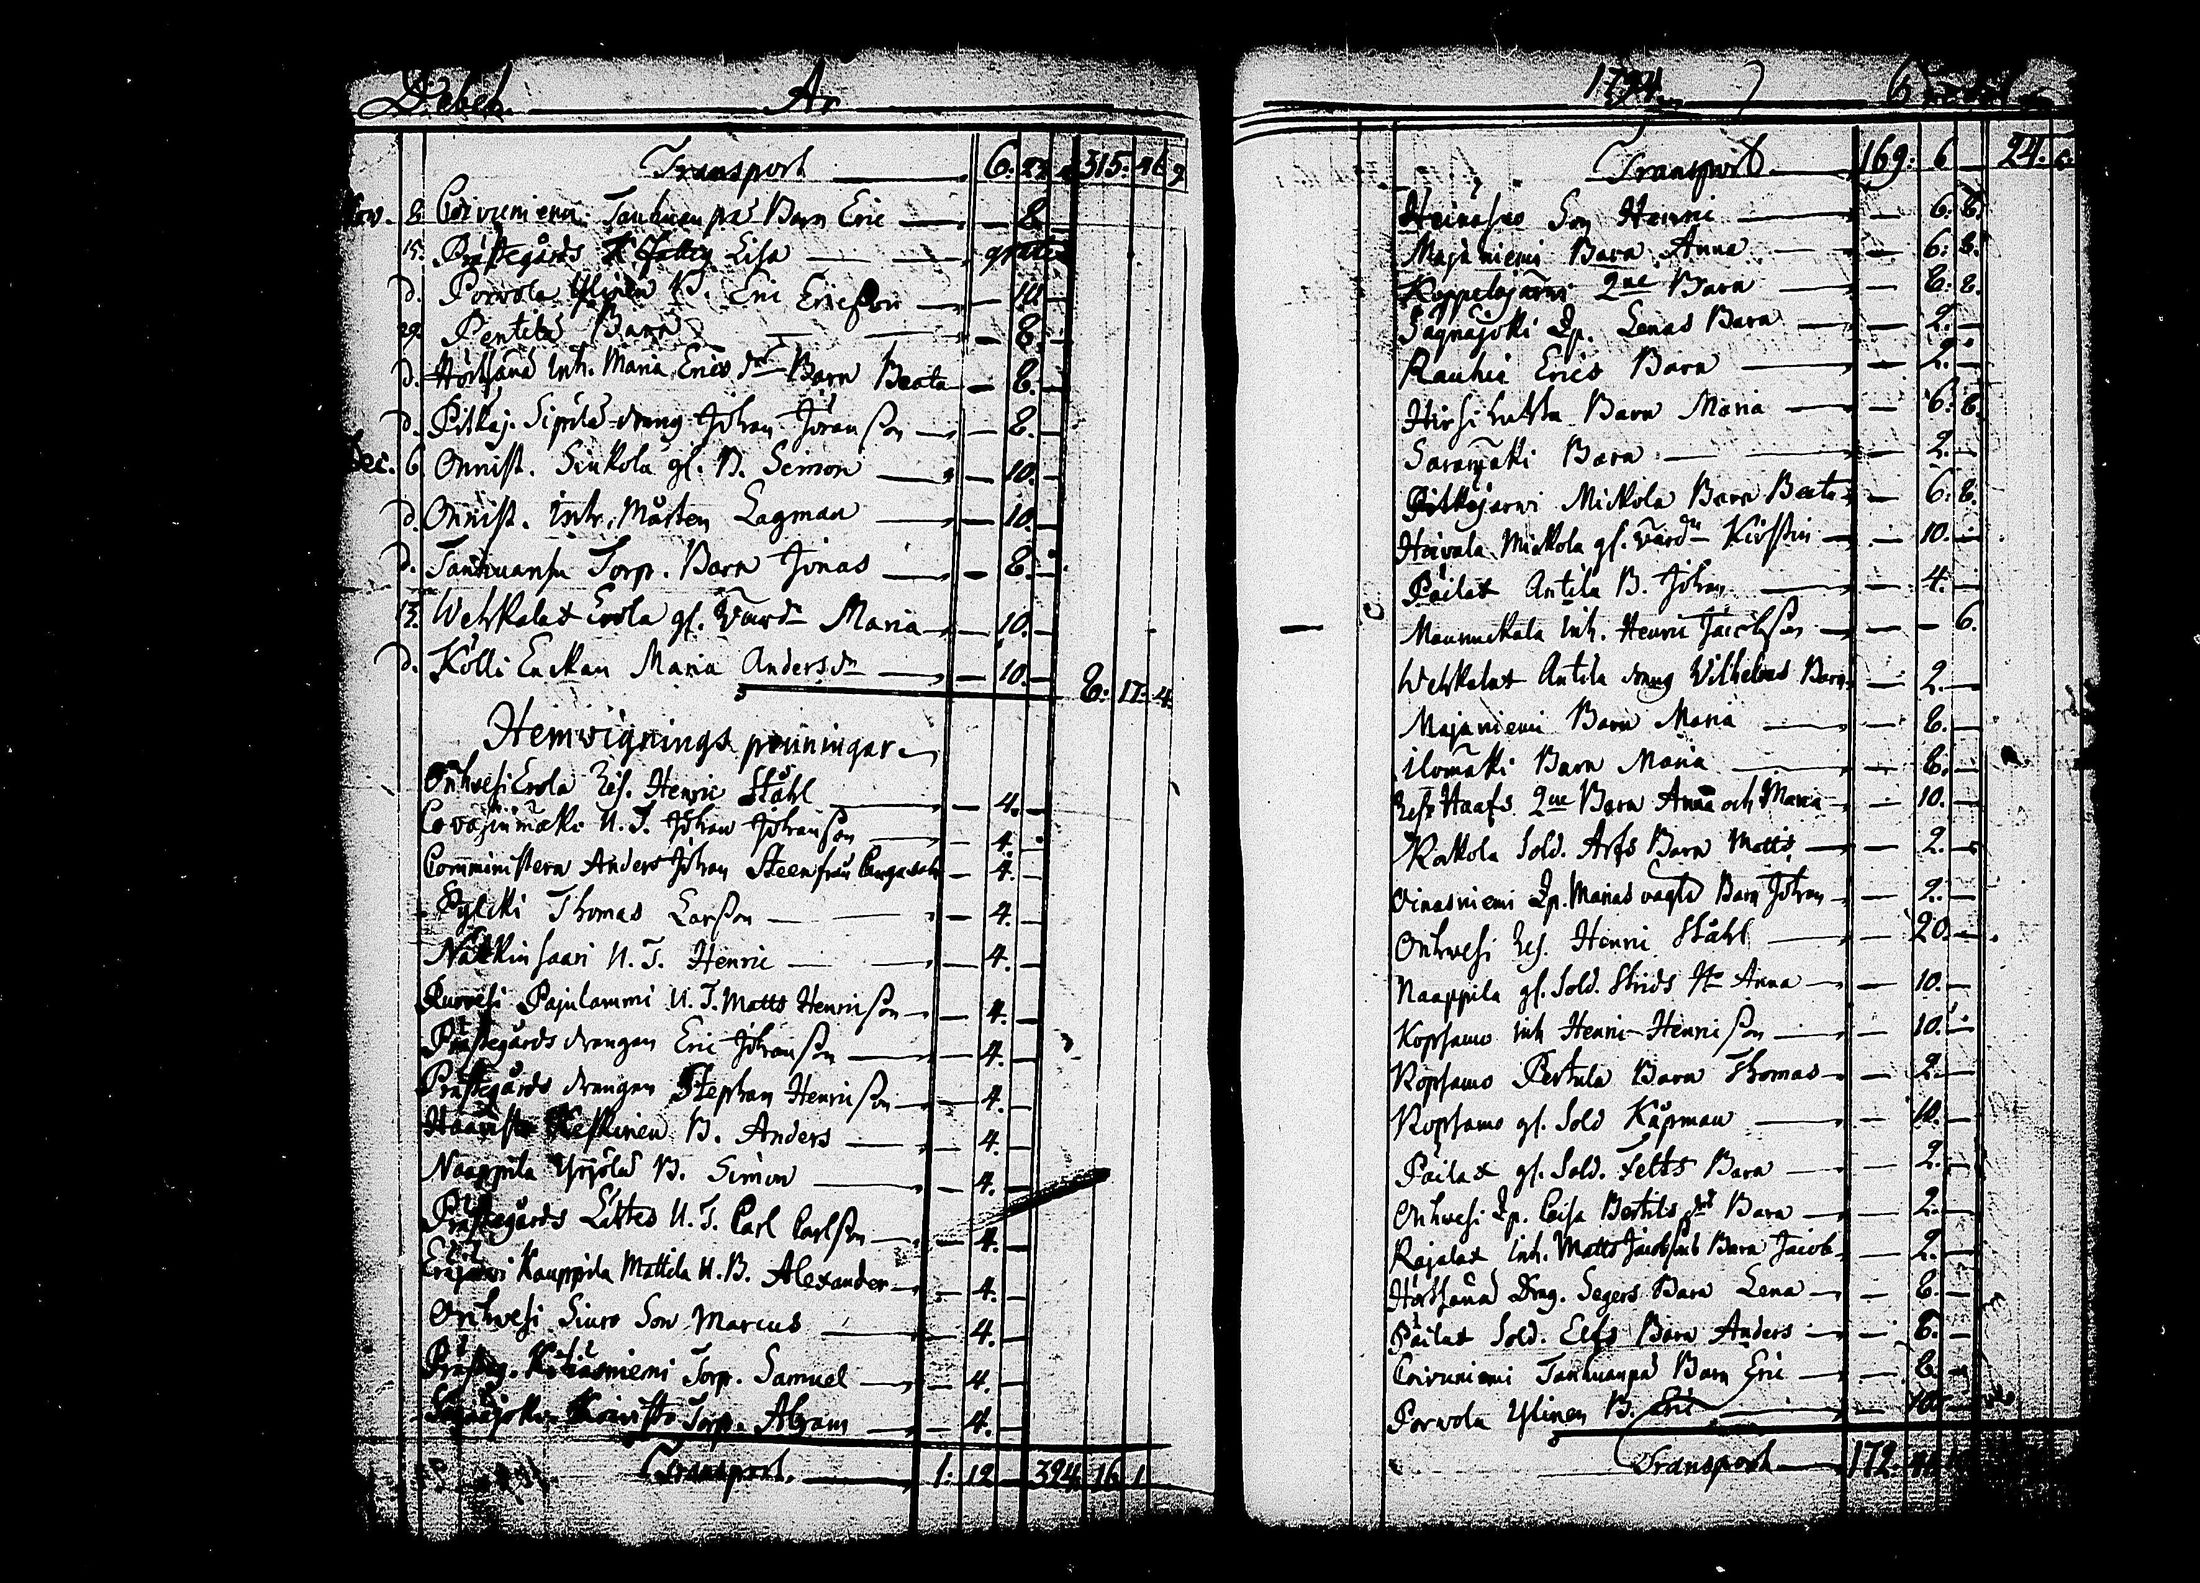 Debet. Ar
Transport 6. 315. 46 9
Nov. 8. Coivuniemi Tanhuanpä Barn Eric 8.
15. Prästegårds Lisa gratis
d. Porvola Ylinen B. Eric Ericsson 10.
29. Pentilä Barn 8.
d. Hörtsänä Inh. Maria Erics dr Barn Beata 8.
d. Pitkäj. Sipilä dräng Johan Jöransson 8.
Dec. 6. Onnist. Siukola gl. B. Simon 10.
d. Onnist. Inh. Mårten Lagman 10.
d. Tanhuanpä Torp. Barn Jonas 8.
13. Wehkalax Erola gl. Värd Maria 10.
d. Kölli Enckan Maria Anders dr 10. 8. 17. 4.
Hemvignings penningar
Onkvesi Erola Res. Henric Ståhl 4.
Covasinmäki U. T. Johan Johansson 4.
Comministern Anders Johan Steen från 4.
Pylcki Thomas Larsson 4.
Näkkinsaari U. T. Henric 4.
Ruovesi Pajulammi U. T. Matts Henrisson 4.
Prästegårds drängen Eric Johansson 4.
Prästegårds drängen Stephan Henrisson 4.
Haavisto Keskinen B. Anders 4.
Naappila Yrjölä B. Simon 4.
Prästegårds U. T. Carl Carlsson 4.
Eräjärvi Kauppila Mattila U. B. Alexander 4.
Onkvesi Siuro Son Marcus 4.
Prästg. Torp. Samuel 4.
Torp. Abram 4.
Transport. 1. 12 324 16 1
1794
Transport 169. 6 24.
Son Henric 6. 8.
Majaniemi Barn Anna 6. 8.
Koppelojärvi 2ne Barn 8. 8.
Sägnäjoki Qp. Lenas Barn 2.
Rauhia Erics Barn 2.
Hirsi Barn Maria 6. 8.
Saramäki Barn 2.
Pitkäjärvi Mickola Barn Beata 6. 8.
Heivala Mickola gl. Värd Kirstin 10.
Päilax Antila B. Johan 4.
Mannuckala Inh. Henric Jacobsson 6.
Wehkalax Antila dräng Wilhelms Barn 2.
Majaniemi Barn Maria 8.
Ilomäki Barn Maria 8.
Res. Haafs 2ne Barn Anna och Maria 10.
Kockola Sold. Arfs Barn Matts 2.
Vinasniemi Qp. Marias oägta Barn Johan 2.
Onkvesi Res. Henric Ståhl 20.
Naappila gl. Sold. Skrids Hu Anna 10.
Kopsamo Inh Henric Henrisson 10.
Kopsamo Pertula Barn Thomas 2.
Kopsamo gl. Sold Kåpman 10.
Päilax gl. Sold. Fetts Barn 2.
Onkvesi Qp. Caisa Bertils drs Barn 2.
Rajalax Inh. Matts Jacobssons Barn Jacob 2.
Hörtsänä Drag. Segers Barn Lena 8.
Päilax Sold. Elfs Barn Anders 8.
Coivuniemi Tanhuanpä Barn Eric 8.
Porvola Ylinen B. Eric 10.
Transport 172.